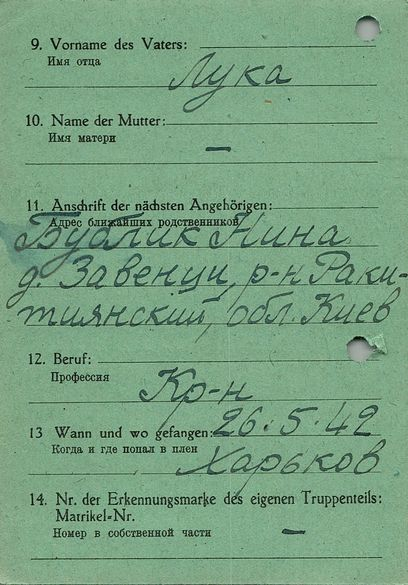 9. Vorname des Vaters:
Имя отца
Лука
10. Name der Mutter:
Имя матери
—
11. Anschrift der nächsten Angehörigen:
Адрес ближайших родственников
Бублик Нина
д. Завенци, р-н Раки-
тиянский, обл. Киев
12. Beruf:
Профессия
Кр-н
13 Wann und wo gefangen: 26.5.42
Когда и где попал в плен
Харьков
14. Nr. der Erkennungsmarke des eigenen Truppenteils:
Matrikel-Nr.
Номер в собственной части
—